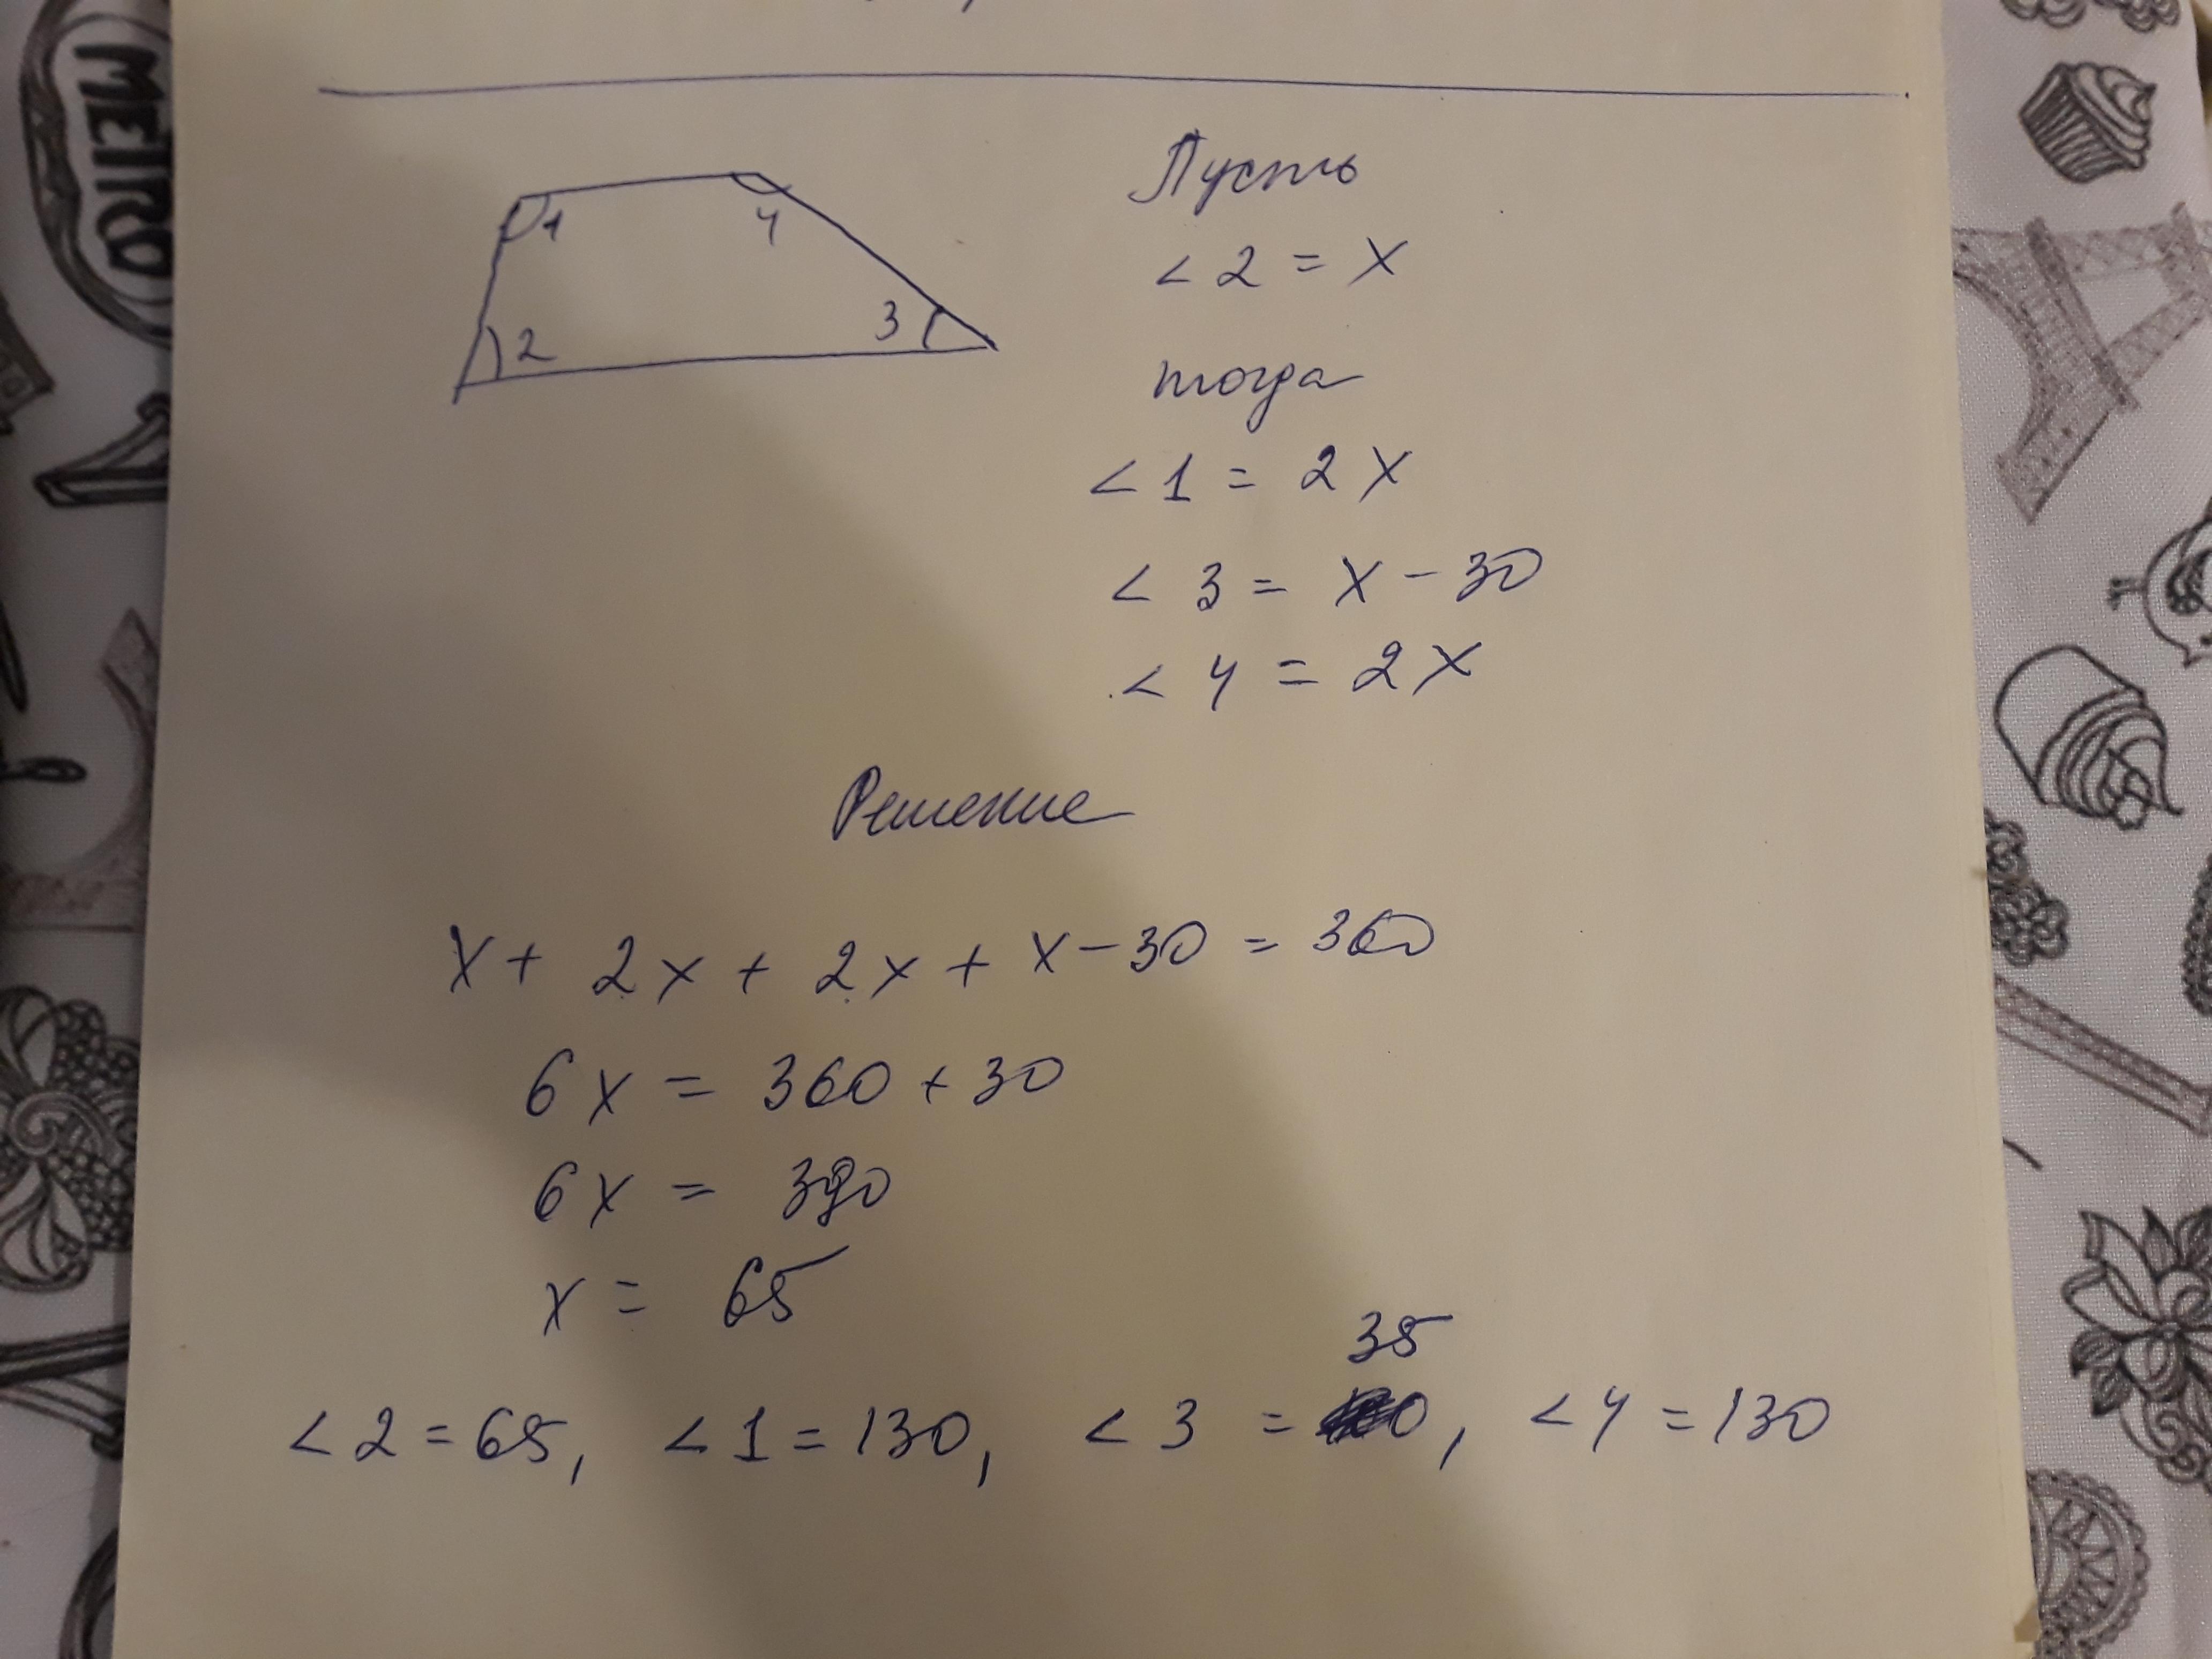 METRO
1
4
2
3
Пусть
< 2 = x
тогда
< 1 = 2x
< 3 = x - 30
< 4 = 2x
Решение
x + 2x + 2x + x - 30 = 360
6x = 360 + 30
6x = 390
x = 65
35
< 2 = 65, < 1 = 130, < 3 = , < 4 = 130